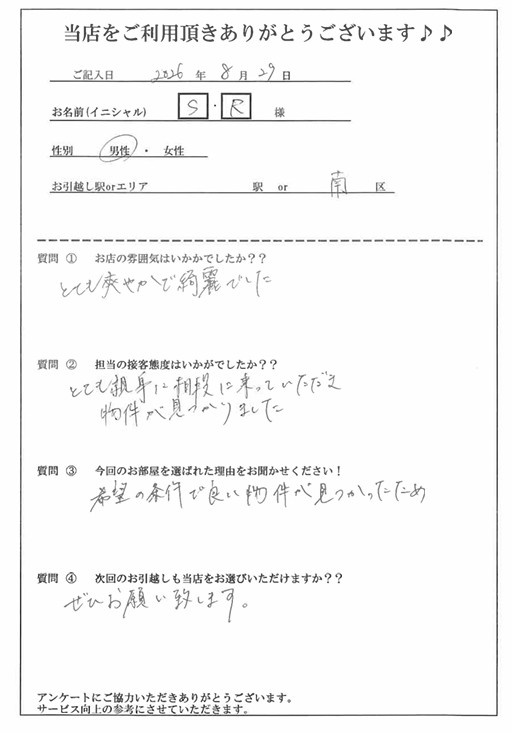 当店をご利用頂きありがとうございます♪♪
ご記入日 2026 年 8 月 29 日
お名前(イニシャル) S ・ R 様
性別 男性 ・ 女性
お引越し駅orエリア 駅 or 南 区
質問 ① お店の雰囲気はいかかでしたか??
とても爽やかで綺麗でした
質問 ② 担当の接客態度はいかがでしたか??
とても親身に相談に乗っていただき
物件が見つかりました
質問 ③ 今回のお部屋を選ばれた理由をお聞かせください!
希望の条件で良い物件が見つかったため
質問 ④ 次回のお引越しも当店をお選びいただけますか??
ぜひお願い致します。
アンケートにご協力いただきありがとうございます。
サービス向上の参考にさせていただきます。